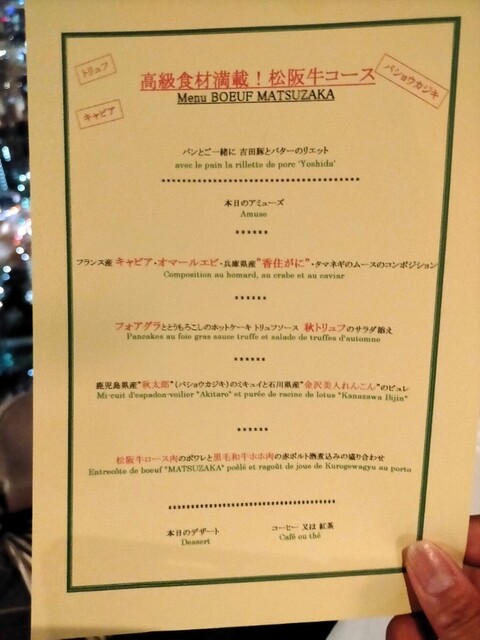 トリュフ
キャビア
バショウカジキ
高級食材満載！松阪牛コース
Menu BOEUF MATSUZAKA
パンとご一緒に 吉田豚とバターのリエット
avec le pain la rillette de porc 'Yoshida'
****************************************
本日のアミューズ
Amuse
******
フランス産 キャビア・オマールエビ・兵庫県産"香住がに"・タマネギのムースのコンポジション
Composition au homard, au crabe et au caviar
******
フォアグラととうもろこしのホットケーキ トリュフソース 秋トリュフのサラダ添え
Pancakes au foie gras sauce truffe et salade de truffes d'automne
******
鹿児島県産"秋太郎"(バショウカジキ)のミキュイと石川県産"金沢美人れんこん"のピュレ
Mi-cuit d'espadon-voilier "Akitaro" et purée de racine de lotus "Kanazawa Bijin"
******
松阪牛ロース肉のポワレと黒毛和牛ホホ肉の赤ポルト酒煮込みの盛り合わせ
Entrecôte de boeuf "MATSUZAKA" poêlé et ragoût de joue de Kurogewagyu au porto
****************************************
本日のデザート
Dessert
コーヒー 又は 紅茶
Café ou thé